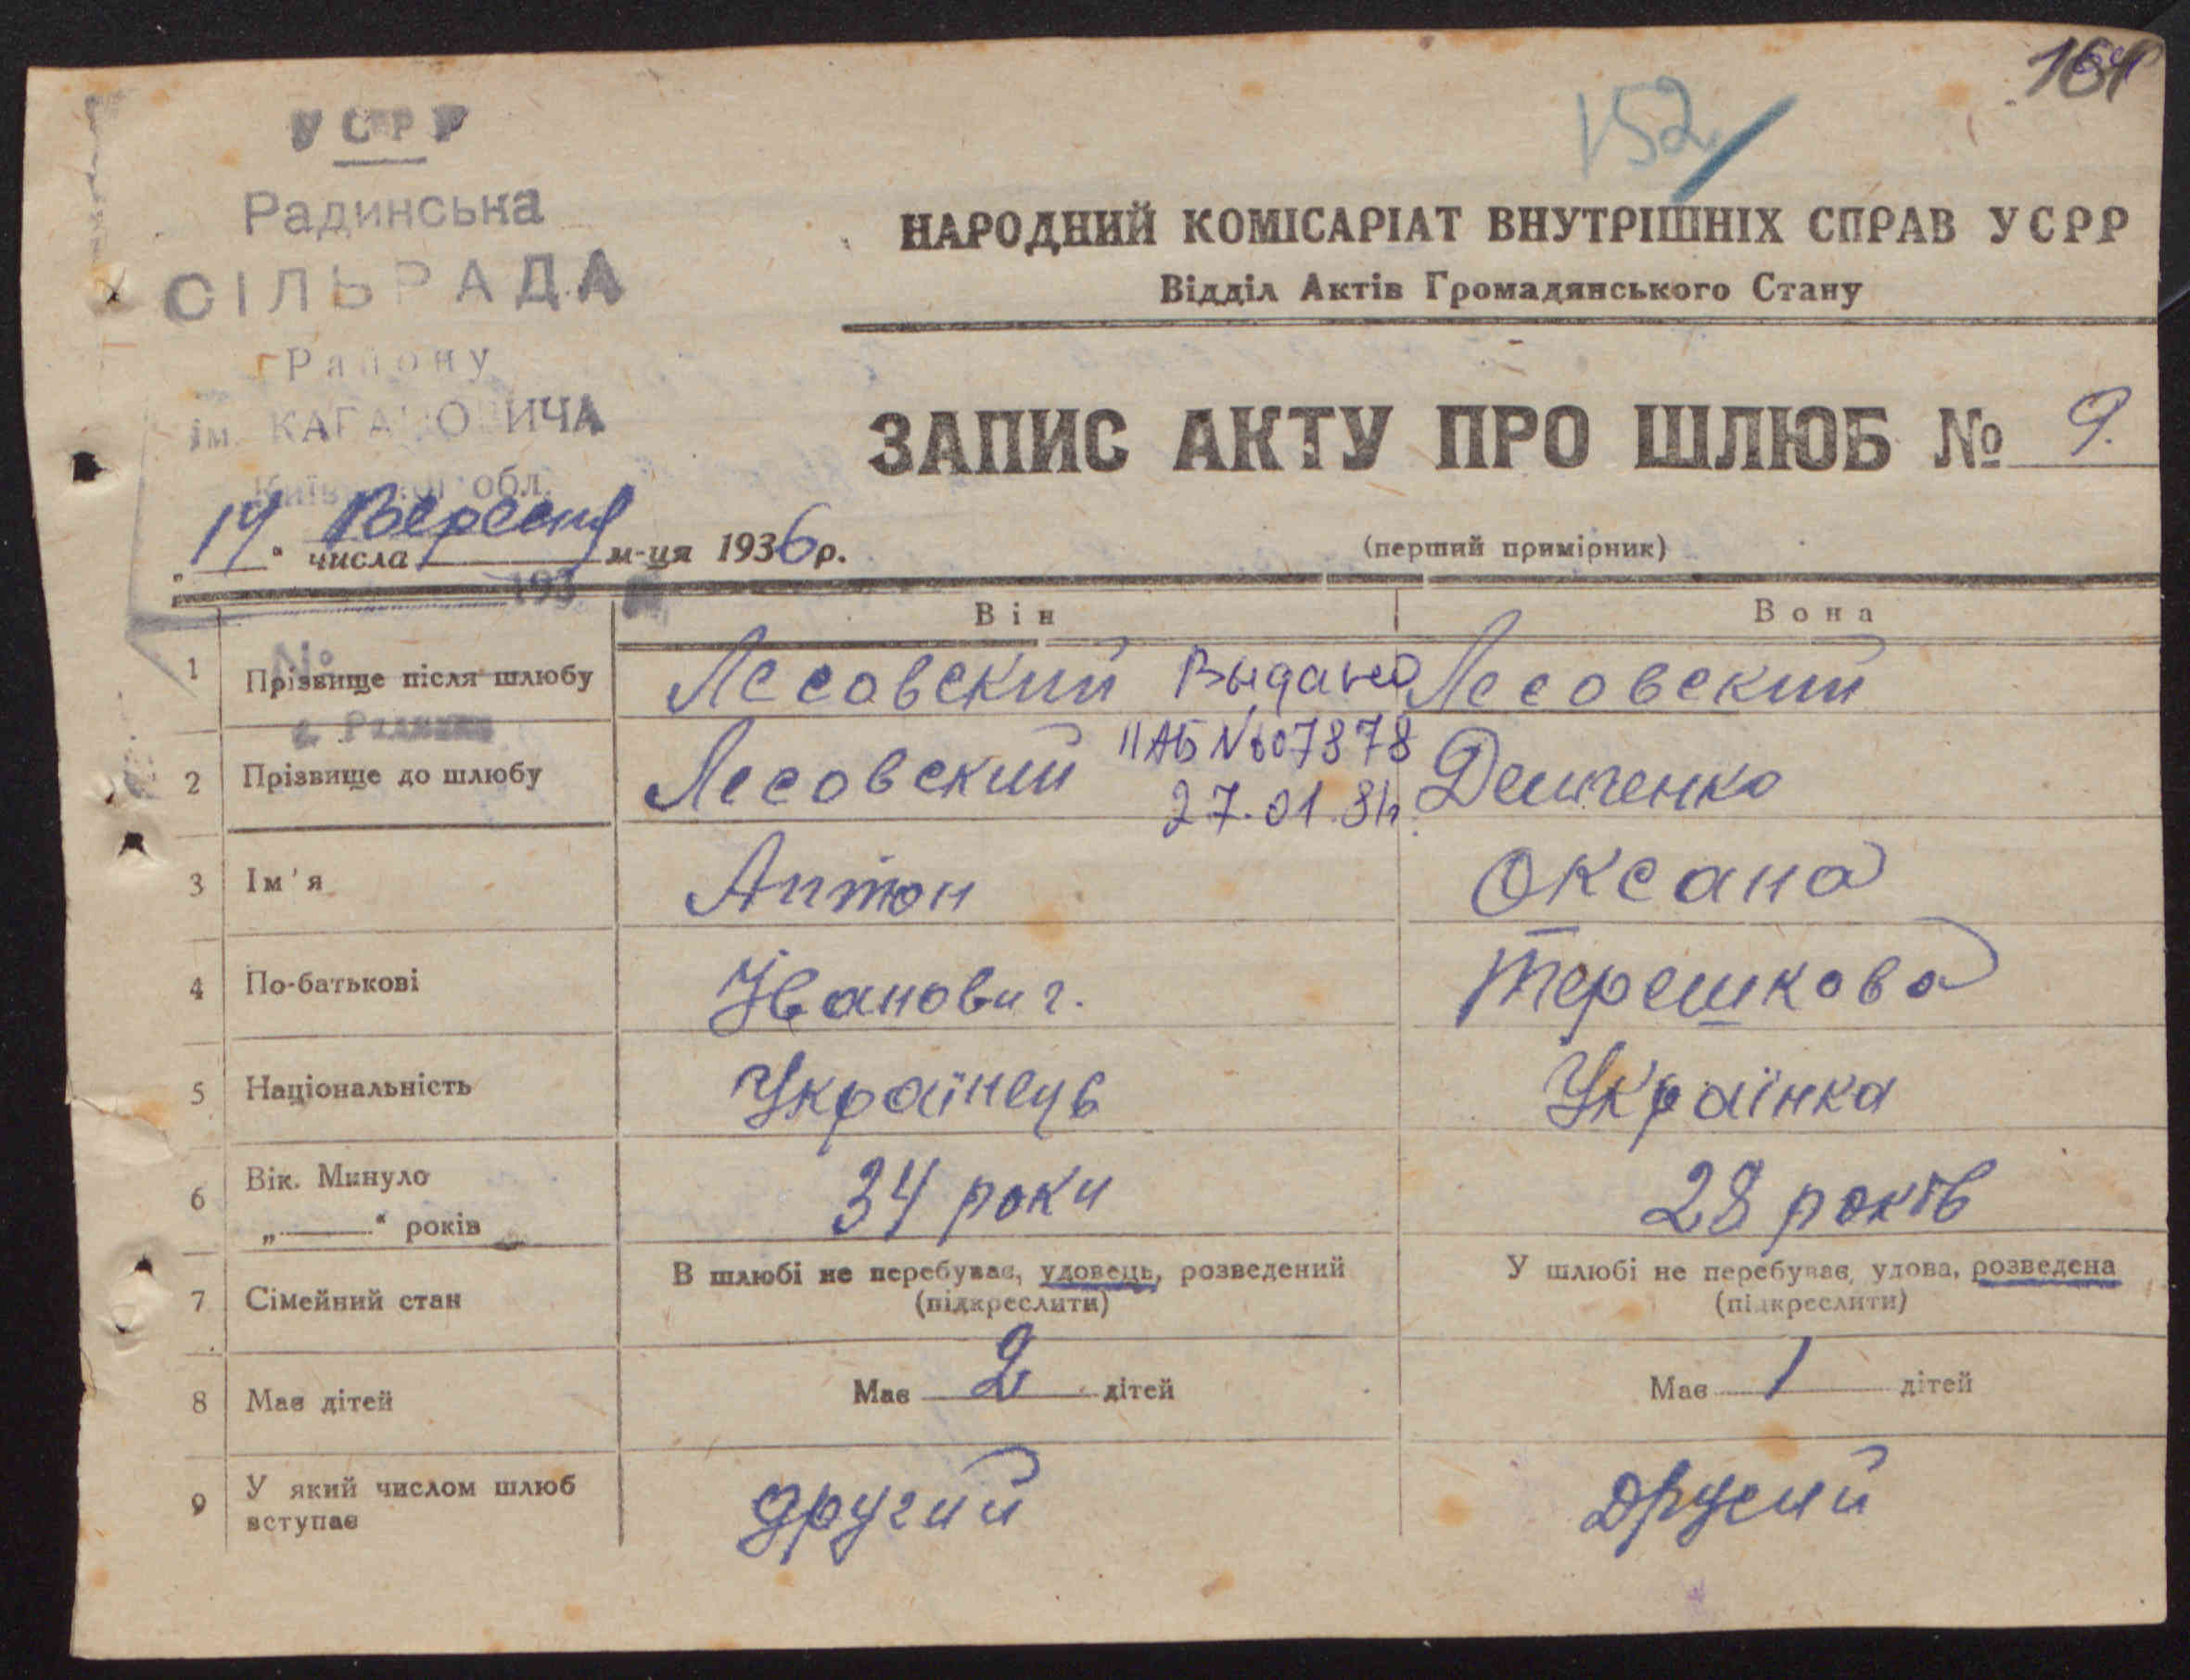 УСРР
Радинська
СІЛЬРАДА
Району
ім. КАГАНОВИЧА
Київської обл.
152
НАРОДНИЙ КОМІСАРІАТ ВНУТРІШНІХ СПРАВ УСРР
Відділ Актів Громадянського Стану
ЗАПИС АКТУ ПРО ШЛЮБ № 9.
„19“ числа Вересня м-ця 1936 р.
(перший примірник)
193
№
Він Вона
1 Прізвище після шлюбу Лесовский Выдано Лесовский
II АБ № 607878
2 Прізвище до шлюбу Лесовский Демченко
27.01.84
3 Ім'я Антон Оксана
4 По-батькові Іванович. Терешкова
5 Національність Українець Українка
6 Вік. Минуло
„ “ років 34 роки 28 років
7 Сімейний стан В шлюбі не перебуває, удовець, розведений У шлюбі не перебуває, удова, розведена
(підкреслити) (підкреслити)
8 Має дітей Має 2 дітей Має 1 дітей
9 У який числом шлюб
вступає другий другий